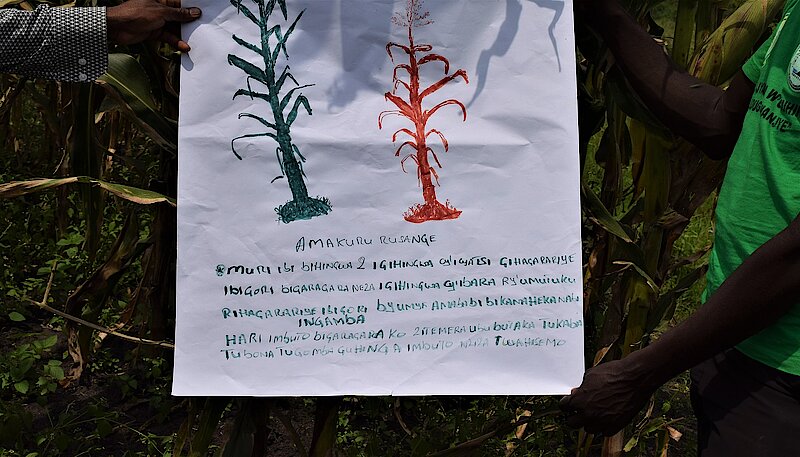 AMAKURU RUSANGE
MURI IBI BIHINGWA 2 IGIHINGWA CY'ICYATSI GIHAGARARIYE
IBIGORI BIGARAGARA NEZA IGIHINGWA CY'IBARA RY'UMUTUKU
RIHAGARARIYE IBIGORI BYUMYE AMABABI BIKANAHEKANABI
INGAMBA
HARI IMBUTO BIGARAGARA KO ZITEMERA UBU BUTAKA TUKABA
TUBONA TUGOMBA GUHINGA IMBUTO NZIZA TWAHISEMO